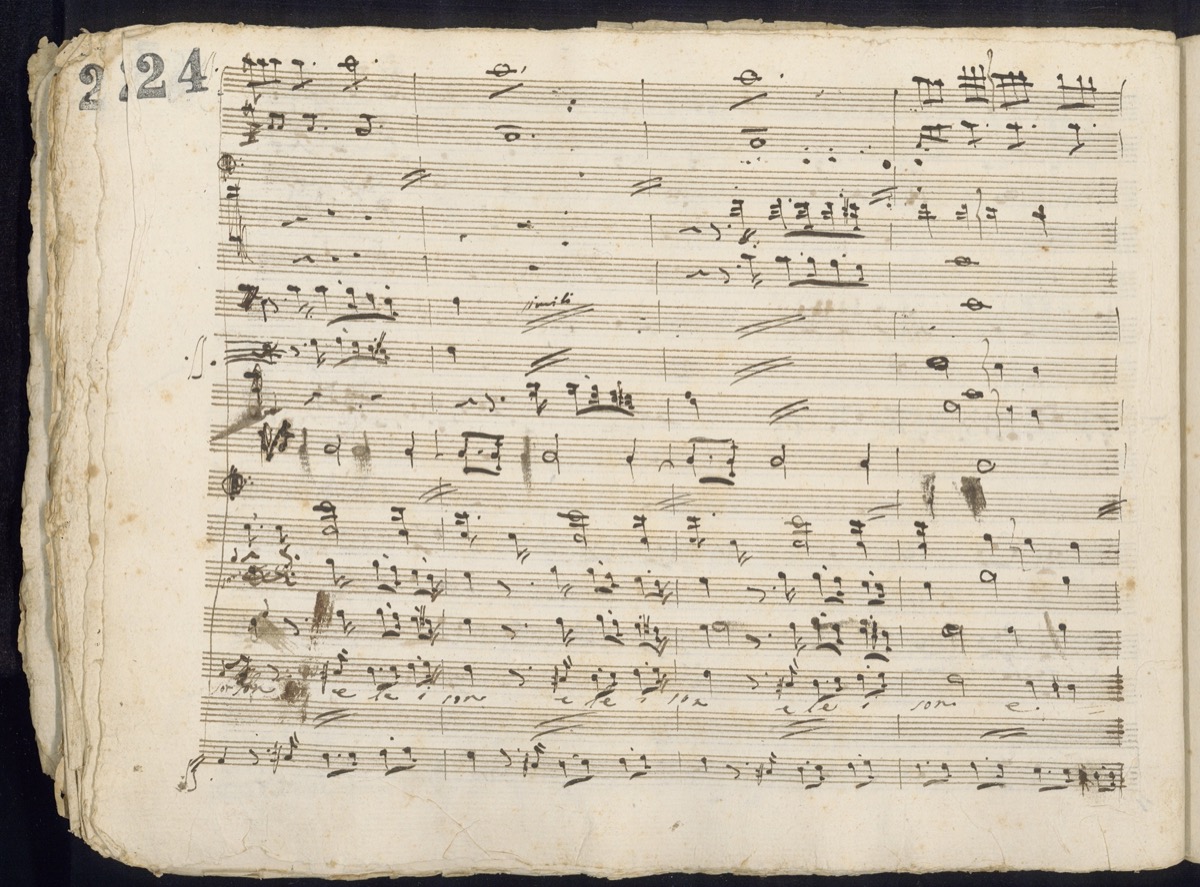 224
simili
son e le i son e le i son e le i son e